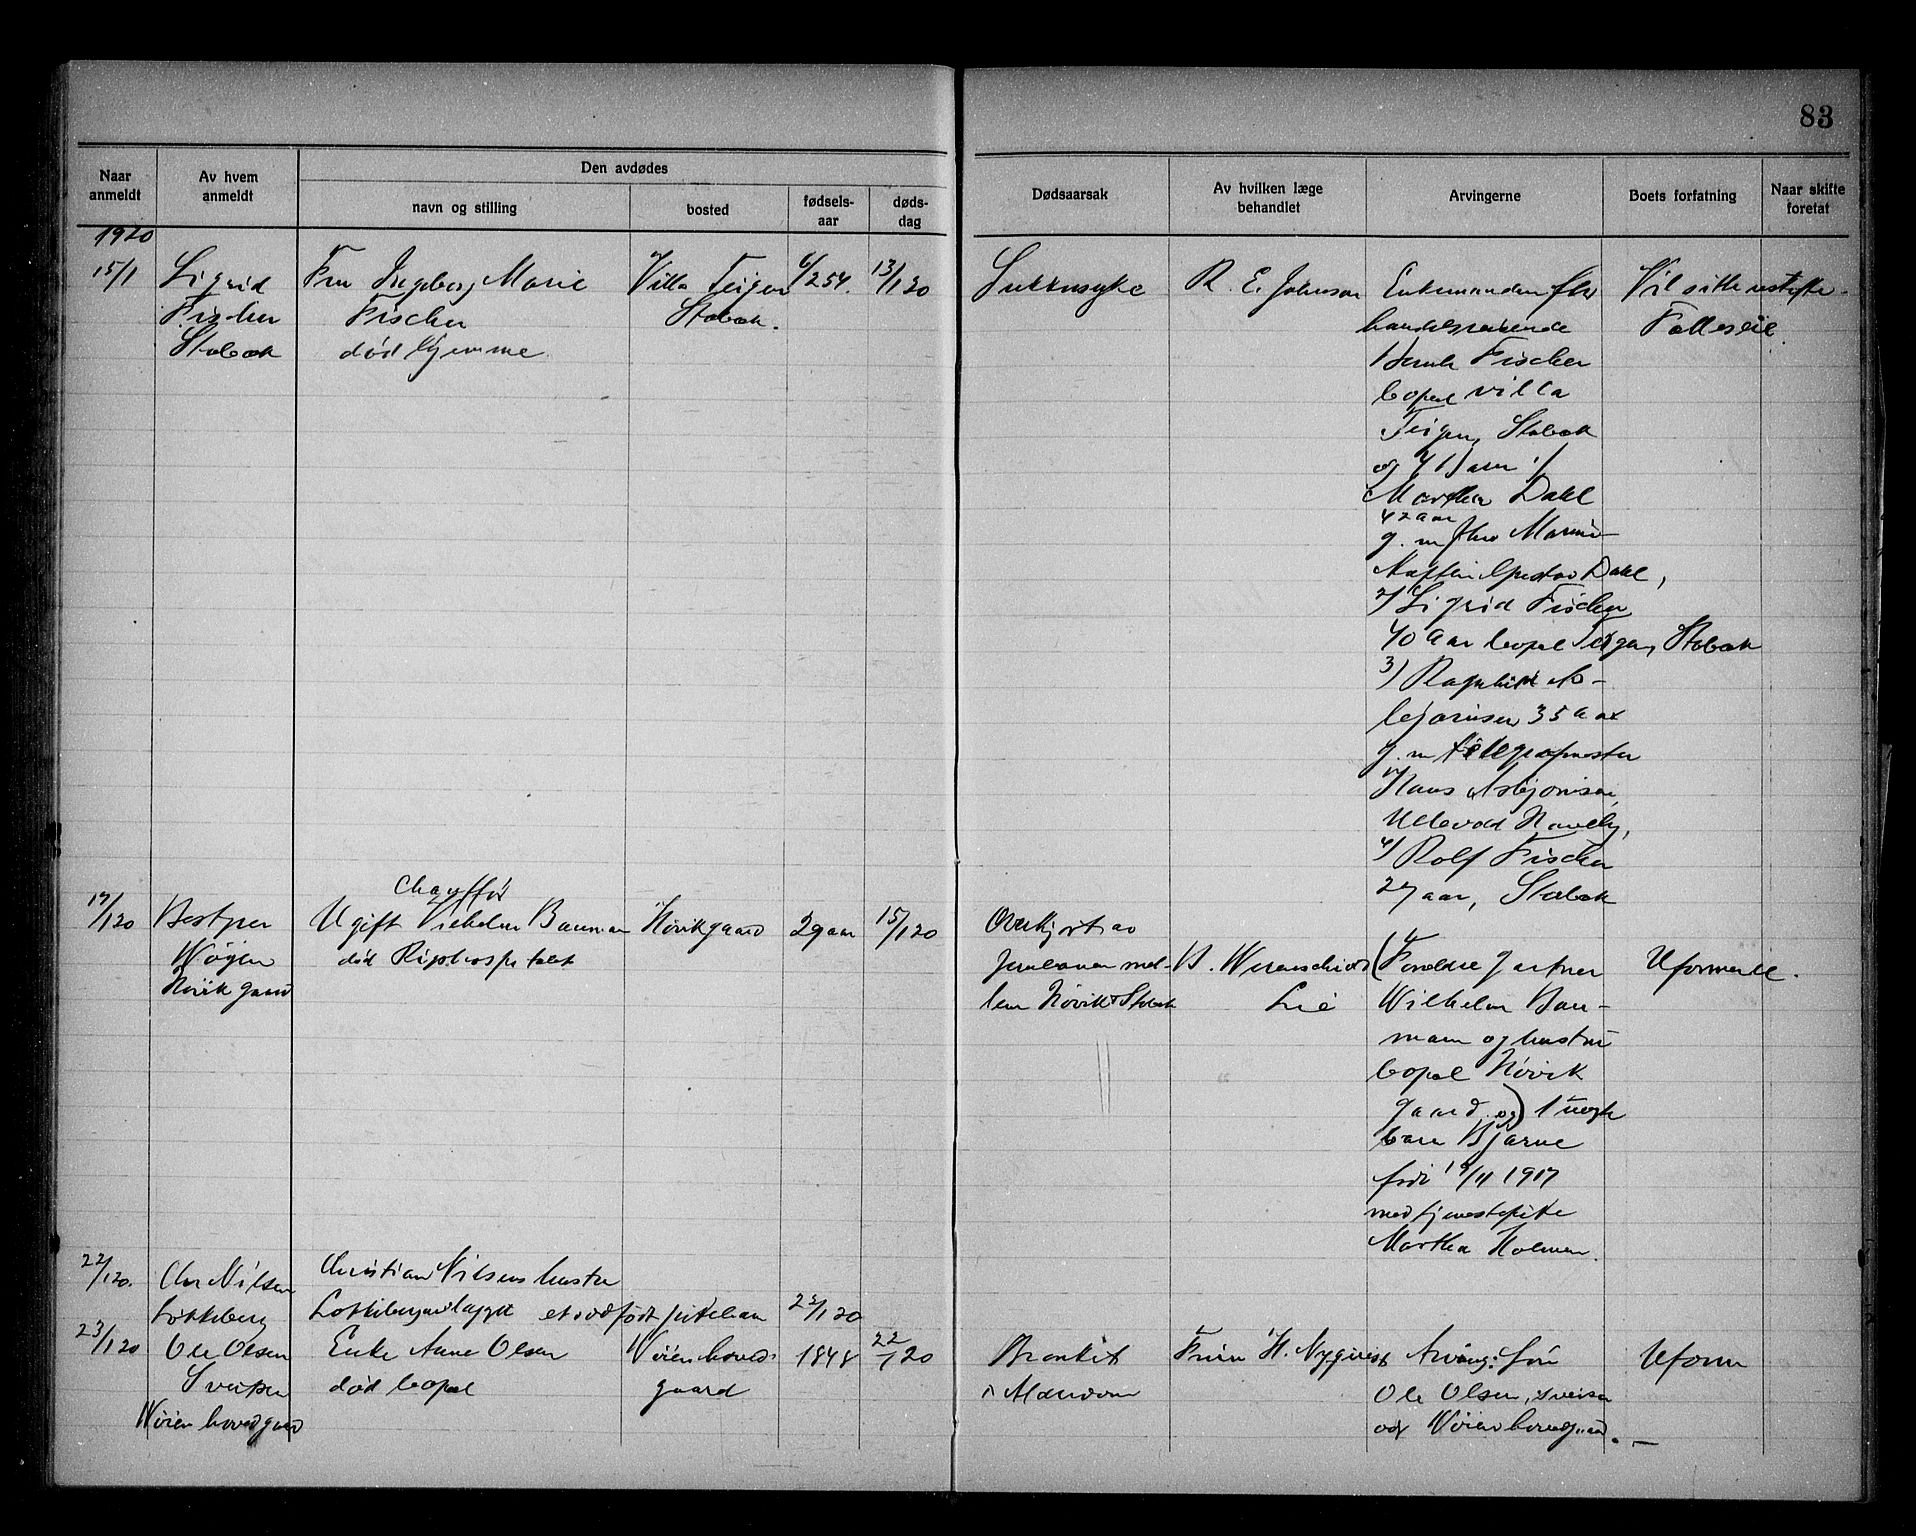 83
Naar anmeldt
Av hvem anmeldt
Den avdødes
navn og stilling
bosted
fødsels-aar
døds-dag
Dødsaarsak
Av hvilken læge behandlet
Arvingerne
Boets forfatning
Naar skifte foretat
1920
15/1
Sigrid
Fischer
Stabæk
Fru Ingeborg Marie
Fischer
død hjemme
Villa Teigen
Stabæk.
6/2 54
13/1 20
Sukkersyke
R. E. Johnson
Enkemanden fhv
handelsreisende
Fischer
bopæl villa
Teigen, Stabæk
og 4 Barn 1/
Martha Dahl
42 aar
g. m.
Dahl,
2/ Sigrid Fischer
40 aar bopæl Teigen, Stabæk
3/ Ragnhild As-
bjørnsen 35 aar
g. m telegrafmester
Hans Asbjørnsen,
4/ Rolf Fischer
27 aar, Stabæk
Vil sitte i uskiftet
17/1 20
Bestyrer
Wøyen
Høvik gaard
Chauffør
Ugift Vilhelm Bauman
død Rigshospitalet
Høvik gaard
29 aar
15/1 20
Overkjørt av
jernbanen mel-
lem Høvik & Stabæk
B. Werenschiold
Lie
(Forældre gartner
Wilhelm Bau-
mann og hustru
bopæl Høvik
gaard og) 1 uegte
barn Bjarne
født 19/11 1917
med tjenestepike
Martha Holmen.
Uformuende.
22/1 20.
Chr Nilsen
Løkkeberg
Christian Nilsens hustru
et dødfødt pikebarn
22/1 20
23/1 20
Ole Olsen
Sveiser
Wøien hovedgaard
Enke Anne Olsen
død bopæl
Wøien hoved
gaard
1848
22/1 20
Bronkit
Alderdom
H. Nyqvist
Arving: søn
Ole Olsen, sveiser
Wøien hovedgaard.
Uform